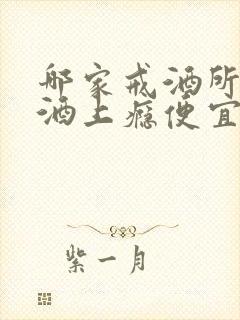 哪家戒酒所
酒上瘾便宜
紫一月